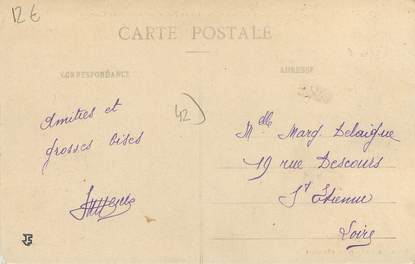 12€
CARTE POSTALE
CORRESPONDANCE
ADRESSE
42
Amities et
grosses bises
Melle Marg Delaigue
19 rue Descours
St Etienne
Loire